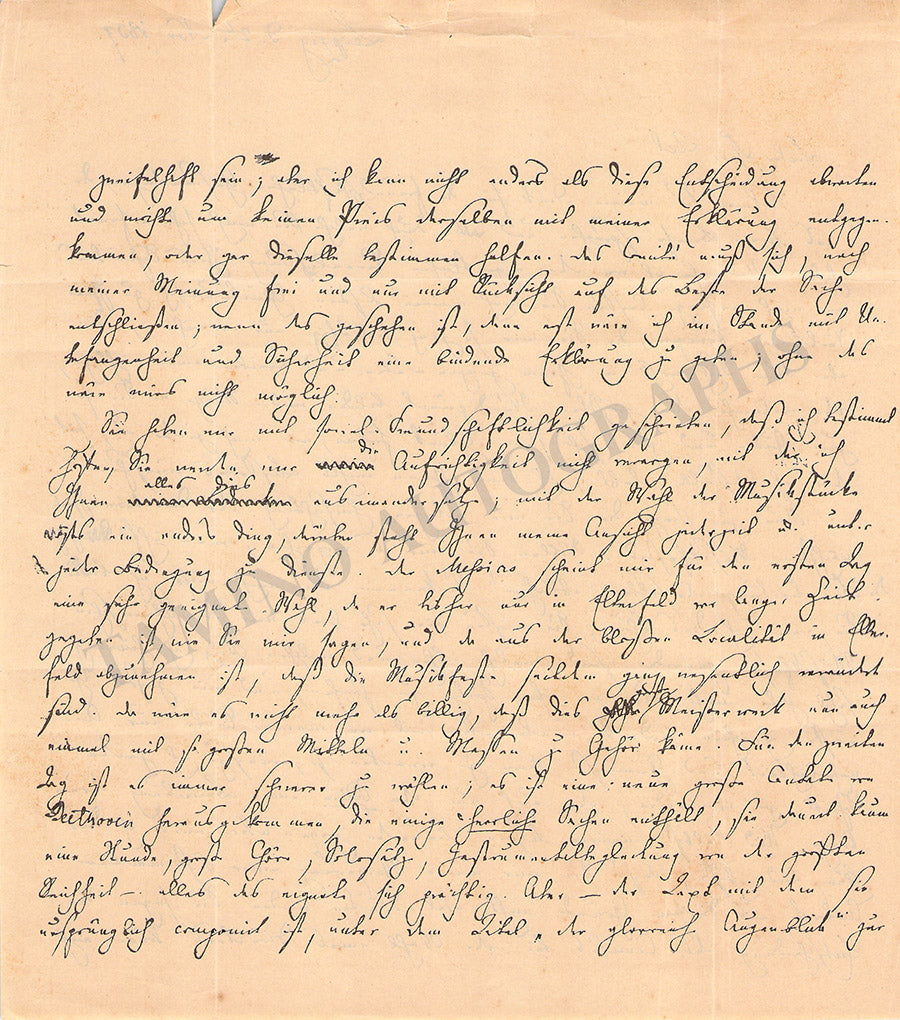 zweifelhaft sein; aber ich kann nicht anders als diese Entscheidung abwarten
und möchte um keinen Preis derselben mit meiner Erklärung entgegen-
kommen, oder gar dieselbe bestimmen helfen. Das Comité muß sich, nach
meiner Meinung frei und nur mit Rücksicht auf das Beste der Sache
entschließen; wenn das geschehen ist, dann erst wäre ich im Stande mit Un-
befangenheit und Sicherheit eine bindende Erklärung zu geben; ohne das
wäre mirs nicht möglich.
Sie haben mir mit soviel Freundschaftlichkeit geschrieben, daß ich bestimmt
hoffe, Sie werden mir die Aufrichtigkeit nicht verargen, mit der ich
Ihnen alles dies auseinander setze; mit der Wahl der Musikstücke
ists ein anders Ding, darüber steht Ihnen meine Ansicht jederzeit u. unter
jeder Bedingung zu Dienste. Der Messias scheint mir für den ersten Tag
eine sehr geeignete Wahl, da er bisher nur in Elberfeld vor langer Zeit
gegeben ist, wie Sie mir sagen, und da aus der bloßen Localität in Elber-
feld abzunehmen ist, daß die Musikfeste seitdem ganz wesentlich verändert
sind. Da wäre es nicht mehr als billig, daß dies Meisterwerk nun auch
einmal mit so großen Mitteln u. Massen zu Gehör käme. Für den zweiten
Tag ist es immer schwerer zu wählen; es ist eine neue große Cantate von
Beethoven herausgekommen, die einige herrliche Sachen enthält, sie dauert kaum
eine Stunde, große Chöre, Solosätze, Instrumentalbegleitung von der größten
Reichheit – alles das eignete sich prächtig. Aber – der Text mit dem sie
ursprünglich componirt ist, unter dem Titel „der glorreiche Augenblick" zur
TAMINO AUTOGRAPHS